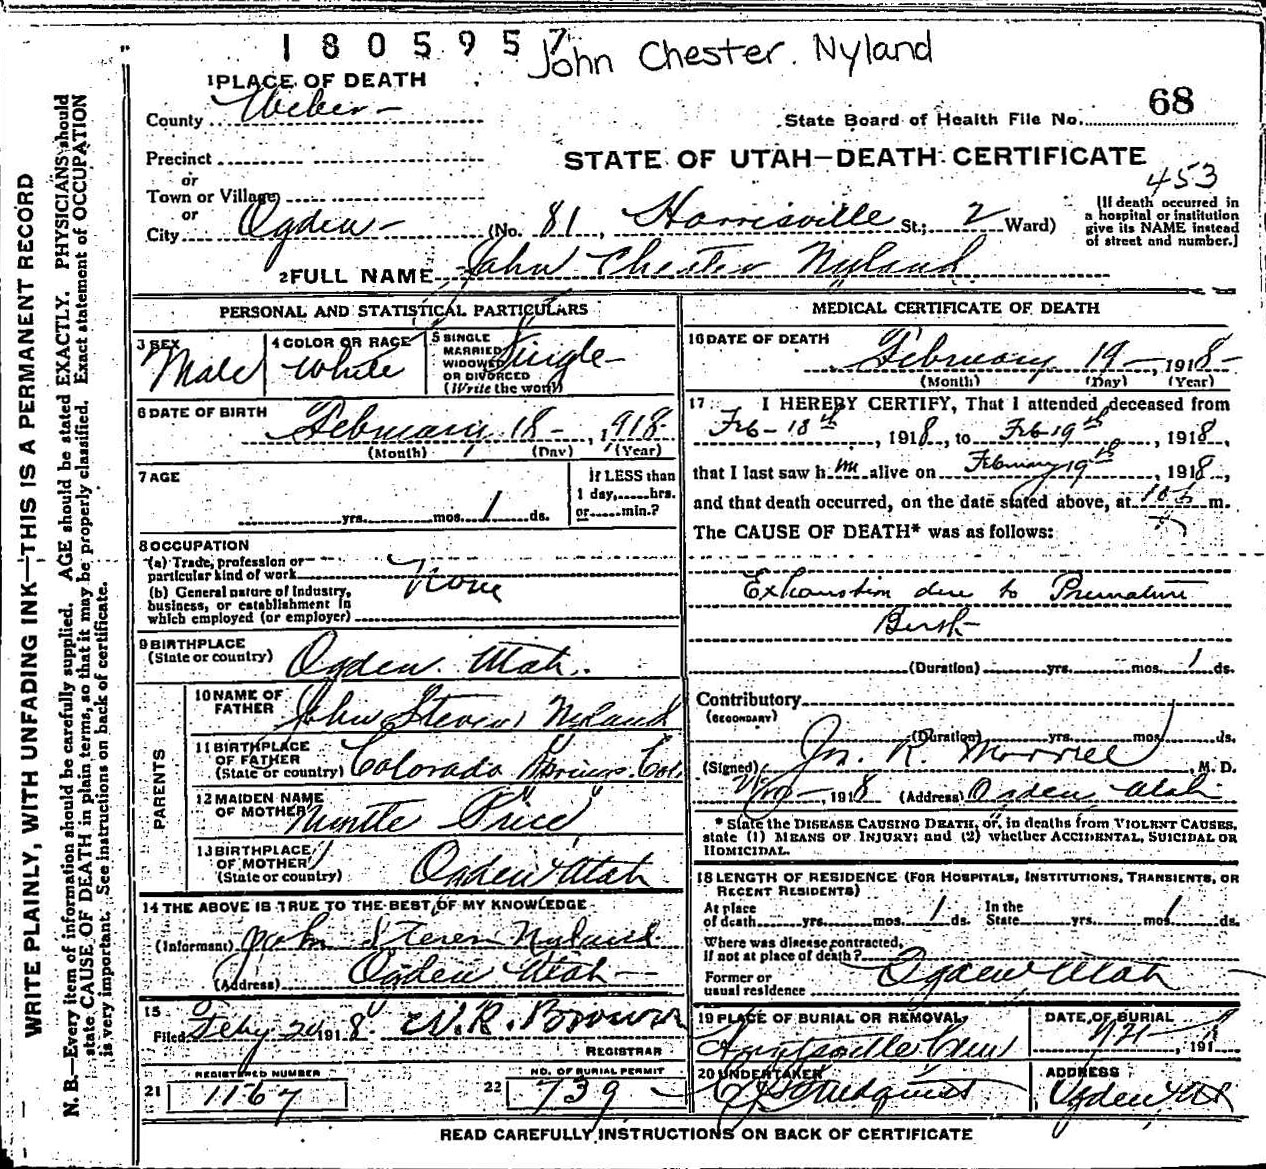 1805957
John Chester. Nyland
1 PLACE OF DEATH
County Weber
State Board of Health File No. 68
Precinct
STATE OF UTAH—DEATH CERTIFICATE
or
Town or Village
or
453
City Ogden (No. 81, Harrisville St.; 2 Ward)
[If death occurred in
a hospital or institution
give its NAME instead
of street and number.]
2 FULL NAME John Chester Nyland
PERSONAL AND STATISTICAL PARTICULARS
3 SEX
Male
4 COLOR OR RACE
White
5 SINGLE
MARRIED
WIDOWED
OR DIVORCED
(Write the word)
Single
6 DATE OF BIRTH
February 18 - , 1918
(Month) (Day) (Year)
7 AGE
yrs. mos. 1 ds.
If LESS than
1 day, hrs.
or min.?
8 OCCUPATION
(a) Trade, profession or
particular kind of work None
(b) General nature of Industry,
business, or establishment in
which employed (or employer)
9 BIRTHPLACE
(State or country) Ogden. Utah.
PARENTS
10 NAME OF
FATHER John Steven Nyland
11 BIRTHPLACE
OF FATHER
(State or country) Colorado Springs, Col.
12 MAIDEN NAME
OF MOTHER Price
13 BIRTHPLACE
OF MOTHER
(State or country) Ogden Utah
14 THE ABOVE IS TRUE TO THE BEST OF MY KNOWLEDGE
(Informant) John Steven Nyland
(Address) Ogden Utah
15
Filed Feby 20 1918 W.R. Brown
REGISTRAR
REGISTERED NUMBER
21 1167
NO. OF BURIAL PERMIT
22 739
MEDICAL CERTIFICATE OF DEATH
16 DATE OF DEATH
February 19 - , 1918
(Month) (Day) (Year)
17 I HEREBY CERTIFY, That I attended deceased from
Feb - 18th, 1918, to Feb 19th, 1918,
that I last saw him alive on February 19th, 1918,
and that death occurred, on the date stated above, at m.
The CAUSE OF DEATH* was as follows:
Exhaustion due to Premature
Birth
(Duration) yrs. mos. 1 ds.
Contributory
(SECONDARY)
(Duration) yrs. mos. ds.
(Signed) Jn. R. Morrell, M. D.
, 1918 (Address) Ogden Utah
* State the DISEASE CAUSING DEATH, or, in deaths from VIOLENT CAUSES,
state (1) MEANS OF INJURY; and (2) whether ACCIDENTAL, SUICIDAL OR
HOMICIDAL.
18 LENGTH OF RESIDENCE (FOR HOSPITALS, INSTITUTIONS, TRANSIENTS, OR
RECENT RESIDENTS)
At place
of death yrs. mos. 1 ds.
In the
State yrs. mos. 1 ds.
Where was disease contracted,
if not at place of death?
Former or
usual residence Ogden, Utah
19 PLACE OF BURIAL OR REMOVAL
Huntsville
DATE OF BURIAL
, 191
20 UNDERTAKER
ADDRESS
Ogden Ut
READ CAREFULLY INSTRUCTIONS ON BACK OF CERTIFICATE
WRITE PLAINLY, WITH UNFADING INK—THIS IS A PERMANENT RECORD
N. B.—Every item of information should be carefully supplied. AGE should be stated EXACTLY. PHYSICIANS should
state CAUSE OF DEATH in plain terms, so that it may be properly classified. Exact statement of OCCUPATION
is very important. See instructions on back of certificate.